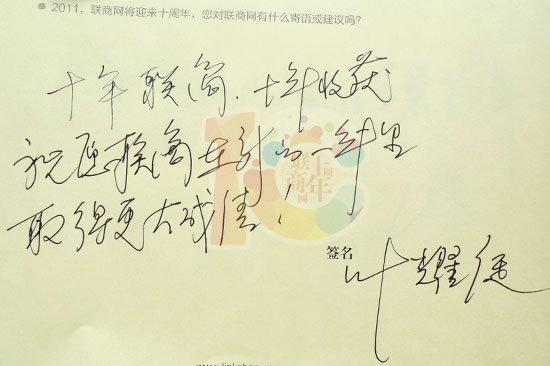 ● 2011,联商网将迎来十周年,您对联商网有什么寄语或建议吗?
十年联商、十年收获
祝愿联商在新的一年里
取得更大成绩!
十周年
联商网
签名
叶耀